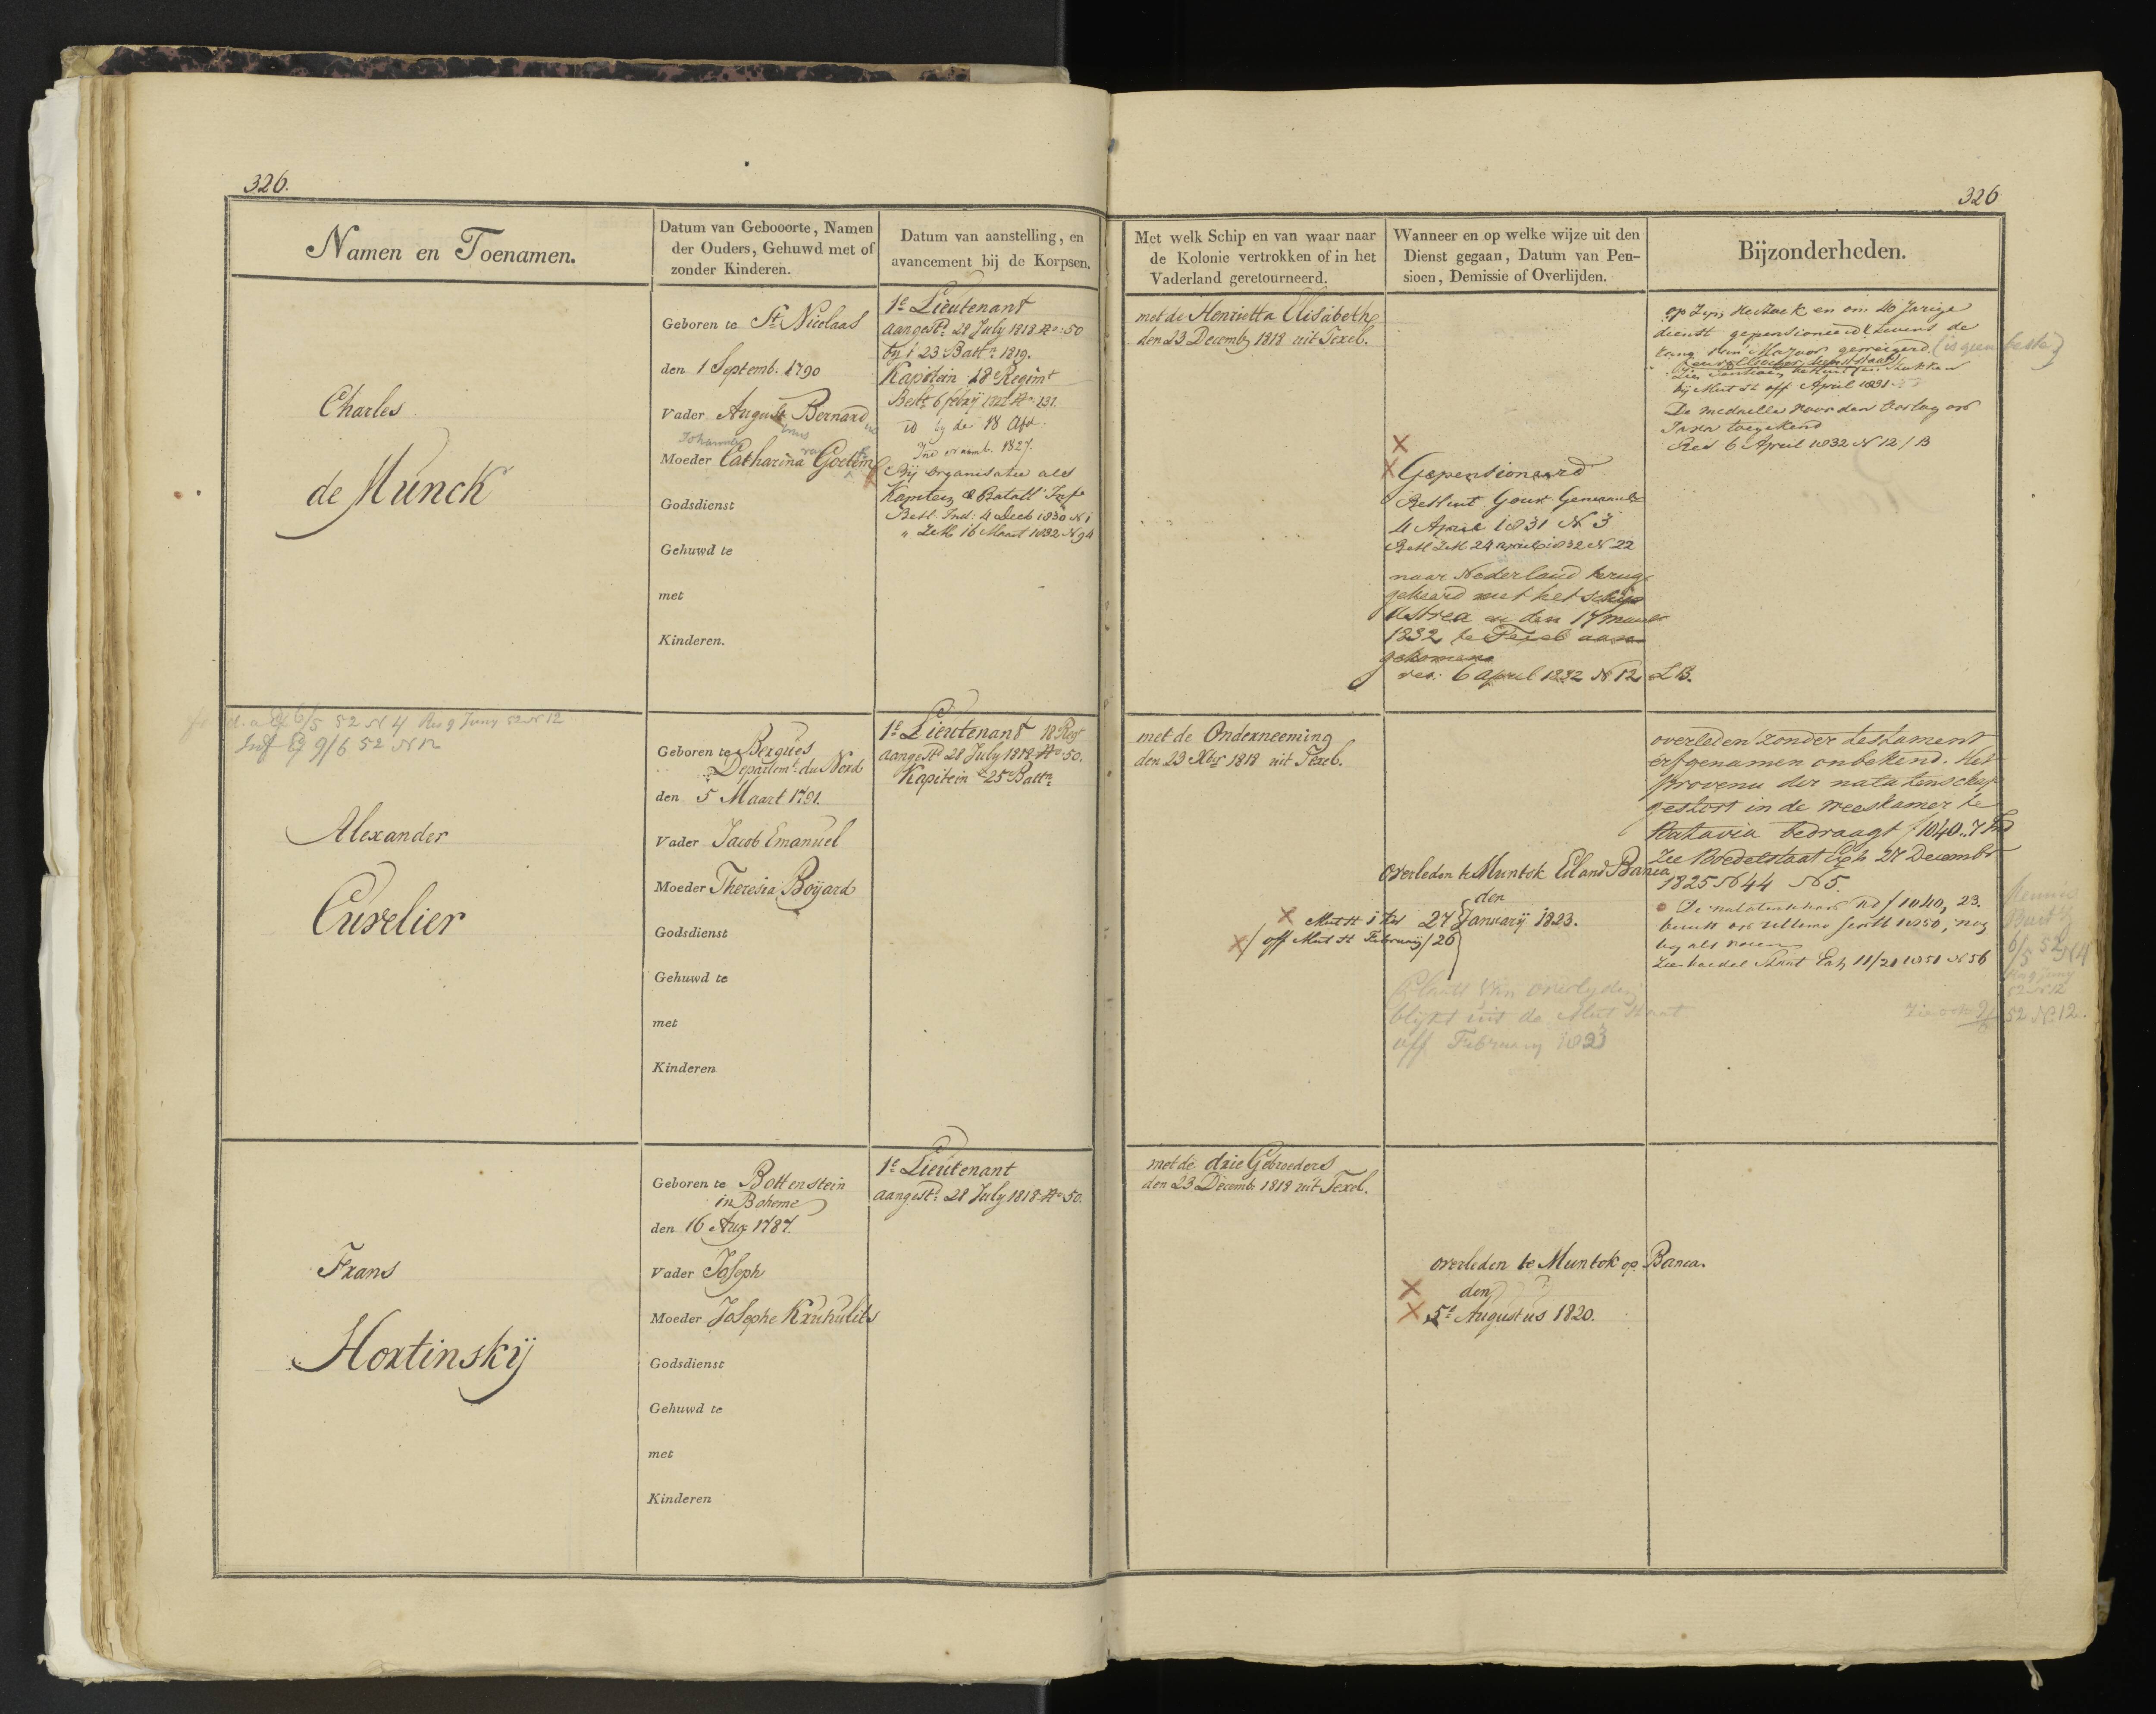 326.
326
Namen en Toenamen.
Datum van Gebooorte, Namen
der Ouders, Gehuwd met of
zonder Kinderen.
Datum van aanstelling, en
avancement bij de Korpsen.
Met welk Schip en van waar naar
de Kolonie vertrokken of in het
Vaderland geretourneerd.
Wanneer en op welke wijze uit den
Dienst gegaan, Datum van Pen-
sioen, Demissie of Overlijden.
Bijzonderheden.
Charles
de Munck
Geboren te St. Nicolaas
den 1 Septemb: 1790
Vader August Bernard
Johanna
Moeder Catharina
Godsdienst
Gehuwd te
met
Kinderen.
1e Lieutenant
aangestd 28 July 1818 No 50
23 Battn 1819.
Kapitein 18e Regimt
Beslt 6 febrij 1822 No 231.
id by de 18 Afd.
1827.
Bij Organisatie als
Kapitein Bataill Infe
Besl. Ind: 4 Decb 1830 N 1
" 16 Maart 1832 N 94
met de Henrietta Elisabeth
den 23 Decemb 1818 uit Texel.
Gepensioneerd
Besluit Gouv Generaal
4 April 1831 N 3
24 april 1832 N 22
naar Nederland terug
gekeerd met het schip
Astrea en den 17 maart
1832 te Texel aan
gekomen
res: 6 April 1832 N 12 LB.
op zijn verzoek en om 40 Jarige
dienst gepensioneerd tevens de
rang van Majoor geweigerd (is geen besta)
bij Mut st off April 1831
De medaille voor den Oorlog op
Java toegekend
Res 6 April 1832 N 12 / B
6/5 52 N 4 Res 9 Juny 52 N 12
9/6 52 N 12
Alexander
Cuvelier
Geboren te Bergues
Departemt du Nord
den 5 Maart 1791.
Vader Jacob Emanuel
Moeder Theresia Boyard
Godsdienst
Gehuwd te
met
Kinderen
1e Lieutenant 18 Regt
aangestd 28 July 1818 No 50.
Kapitein 25 Battn
met de Onderneeming
den 23 Xber 1818 uit Texel.
overleden te Muntok Eiland Banca
den
27 January 1823.
off Mut st February / 26
Plaats van overlyden
blijkt uit de Mut Staat
off February 1823
overleden zonder testament
erfgenamen onbekend. Het
provenu der nalatenschap
gestort in de weeskamer te
Batavia bedraagt f 1040..7
Zie Boedelstaat Exh 27 Decembr
1825 N 44 N 5.
De nalatenschap ad f 1040, 23.
1850, nog
Zie boedel Staat Exh 11/21 1851 N 56
6/5 52 N 4
52 N 12
Zie ook 9/6 52 No 12.
Frans
Hortinskij
Geboren te Bottenstein
in Boheme
den 16 Aug 1787.
Vader Joseph
Moeder Josephe Kruhulits
Godsdienst
Gehuwd te
met
Kinderen
1e Lieutenant
aangestd 28 July 1818 No 50.
met de drie Gebroeders
den 23 Decemb 1818 uit Texel.
overleden te Muntok op Banca.
den
5e Augustus 1820.